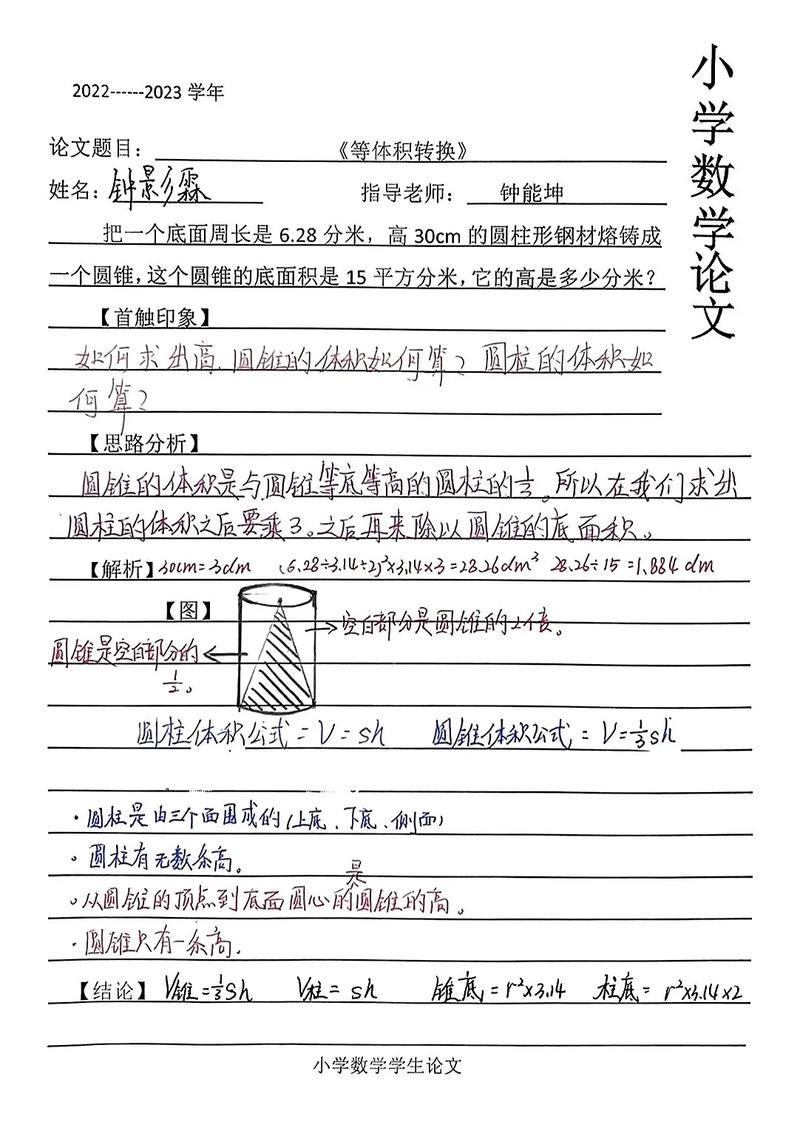 小学数学论文
2022------2023 学年
论文题目： 《等体积转换》
姓名：钟景彡霖 指导老师： 钟能坤
把一个底面周长是 6.28 分米，高 30cm 的圆柱形钢材熔铸成
一个圆锥，这个圆锥的底面积是 15 平方分米，它的高是多少分米？
【首触印象】
如何求出高，圆锥的体积如何算？圆柱的体积如
何算？
【思路分析】
圆锥的体积是与圆锥等底等高的圆柱的1/3。所以在我们求出
圆柱的体积之后要乘3。之后再来除以圆锥的底面积。
【解析】30cm=3dm (6.28÷3.14÷2)²×3.14×3=28.26dm³ 28.26÷15=1.884dm
【图】
空白部分是圆锥的2倍。
圆锥是空白部分的
1/2。
圆柱体积公式=V=sh 圆锥体积公式=V=1/3sh
·圆柱是由三个面围成的(上底、下底、侧面)
。圆柱有无数条高。
是
。从圆锥的顶点到底面圆心的圆锥的高。
·圆锥只有一条高.
【结论】V锥=1/3Sh V柱=sh 锥底=r²×3.14 柱底=r²×3.14×2
小学数学学生论文